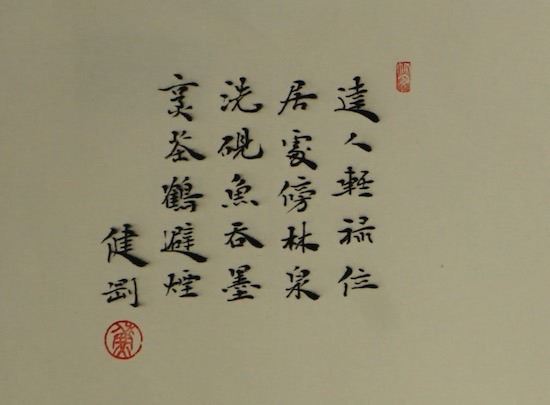 達人輕禄位
居處傍林泉
洗硯魚吞墨
烹茶鶴避煙
健剛